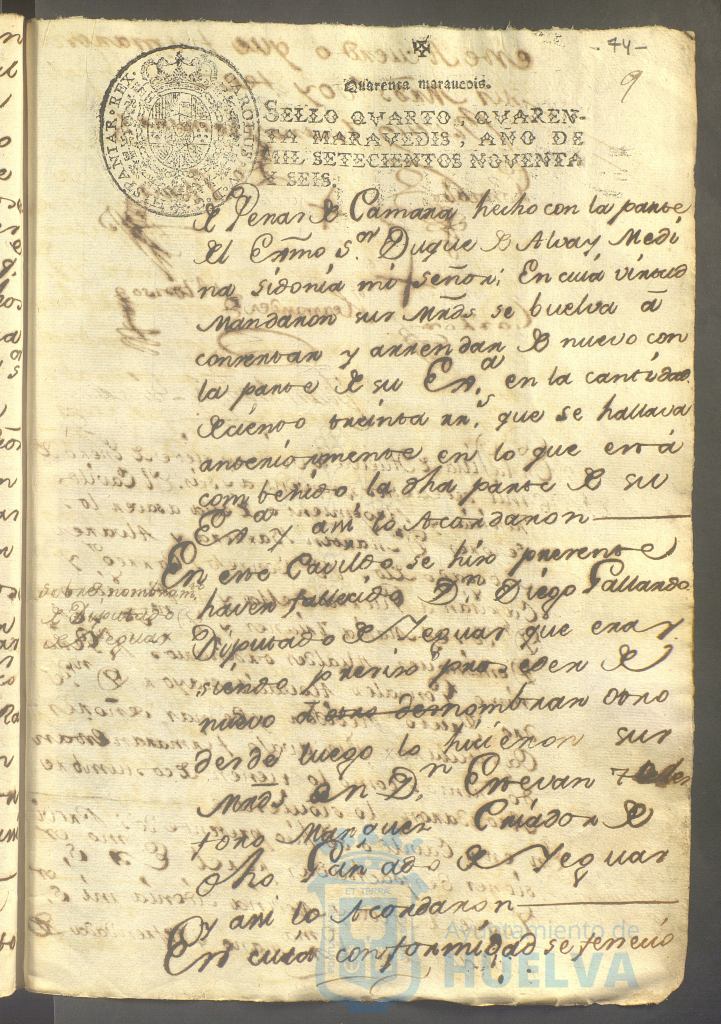 - 44 -
9
Quarenta marauedis.
SELLO QVARTO, QVAREN-
TA MARAVEDIS, AÑO DE
MIL SETECIENTOS NOVENTA
Y SEIS.
HISPANIAR·REX· CAROLUS
de Penas de Camara, hecho con la parte
del Exmo. Sor. Duque de Alva y Medi
na sidonia mi señor; En cuia virtud
Mandaron sus Mrds. se buelva á
consertar y arrendar de nuevo con
la parte de su Exa. en la cantidad
de ciento treinta rrs. que se hallava
anteriormente en lo que está
combenido la dha parte de su
Exa. Y asi lo Acordaron
En este Cavildo se hiso presente
haver fallecido Dn. Diego Gallardo
Diputado de Yeguas que era y
siendo preciso proseder de
nuevo nombrar otro
desde luego lo hicieron sus
Mrds. en Dn. Estevan
toro Marquez Criador de
dho Ganado de Yeguas
y asi lo Acordaron
En cuia conformidad se fenecio
sobre nombramto.
de Diputado
de Yeguas
Ayuntamiento de
HUELVA